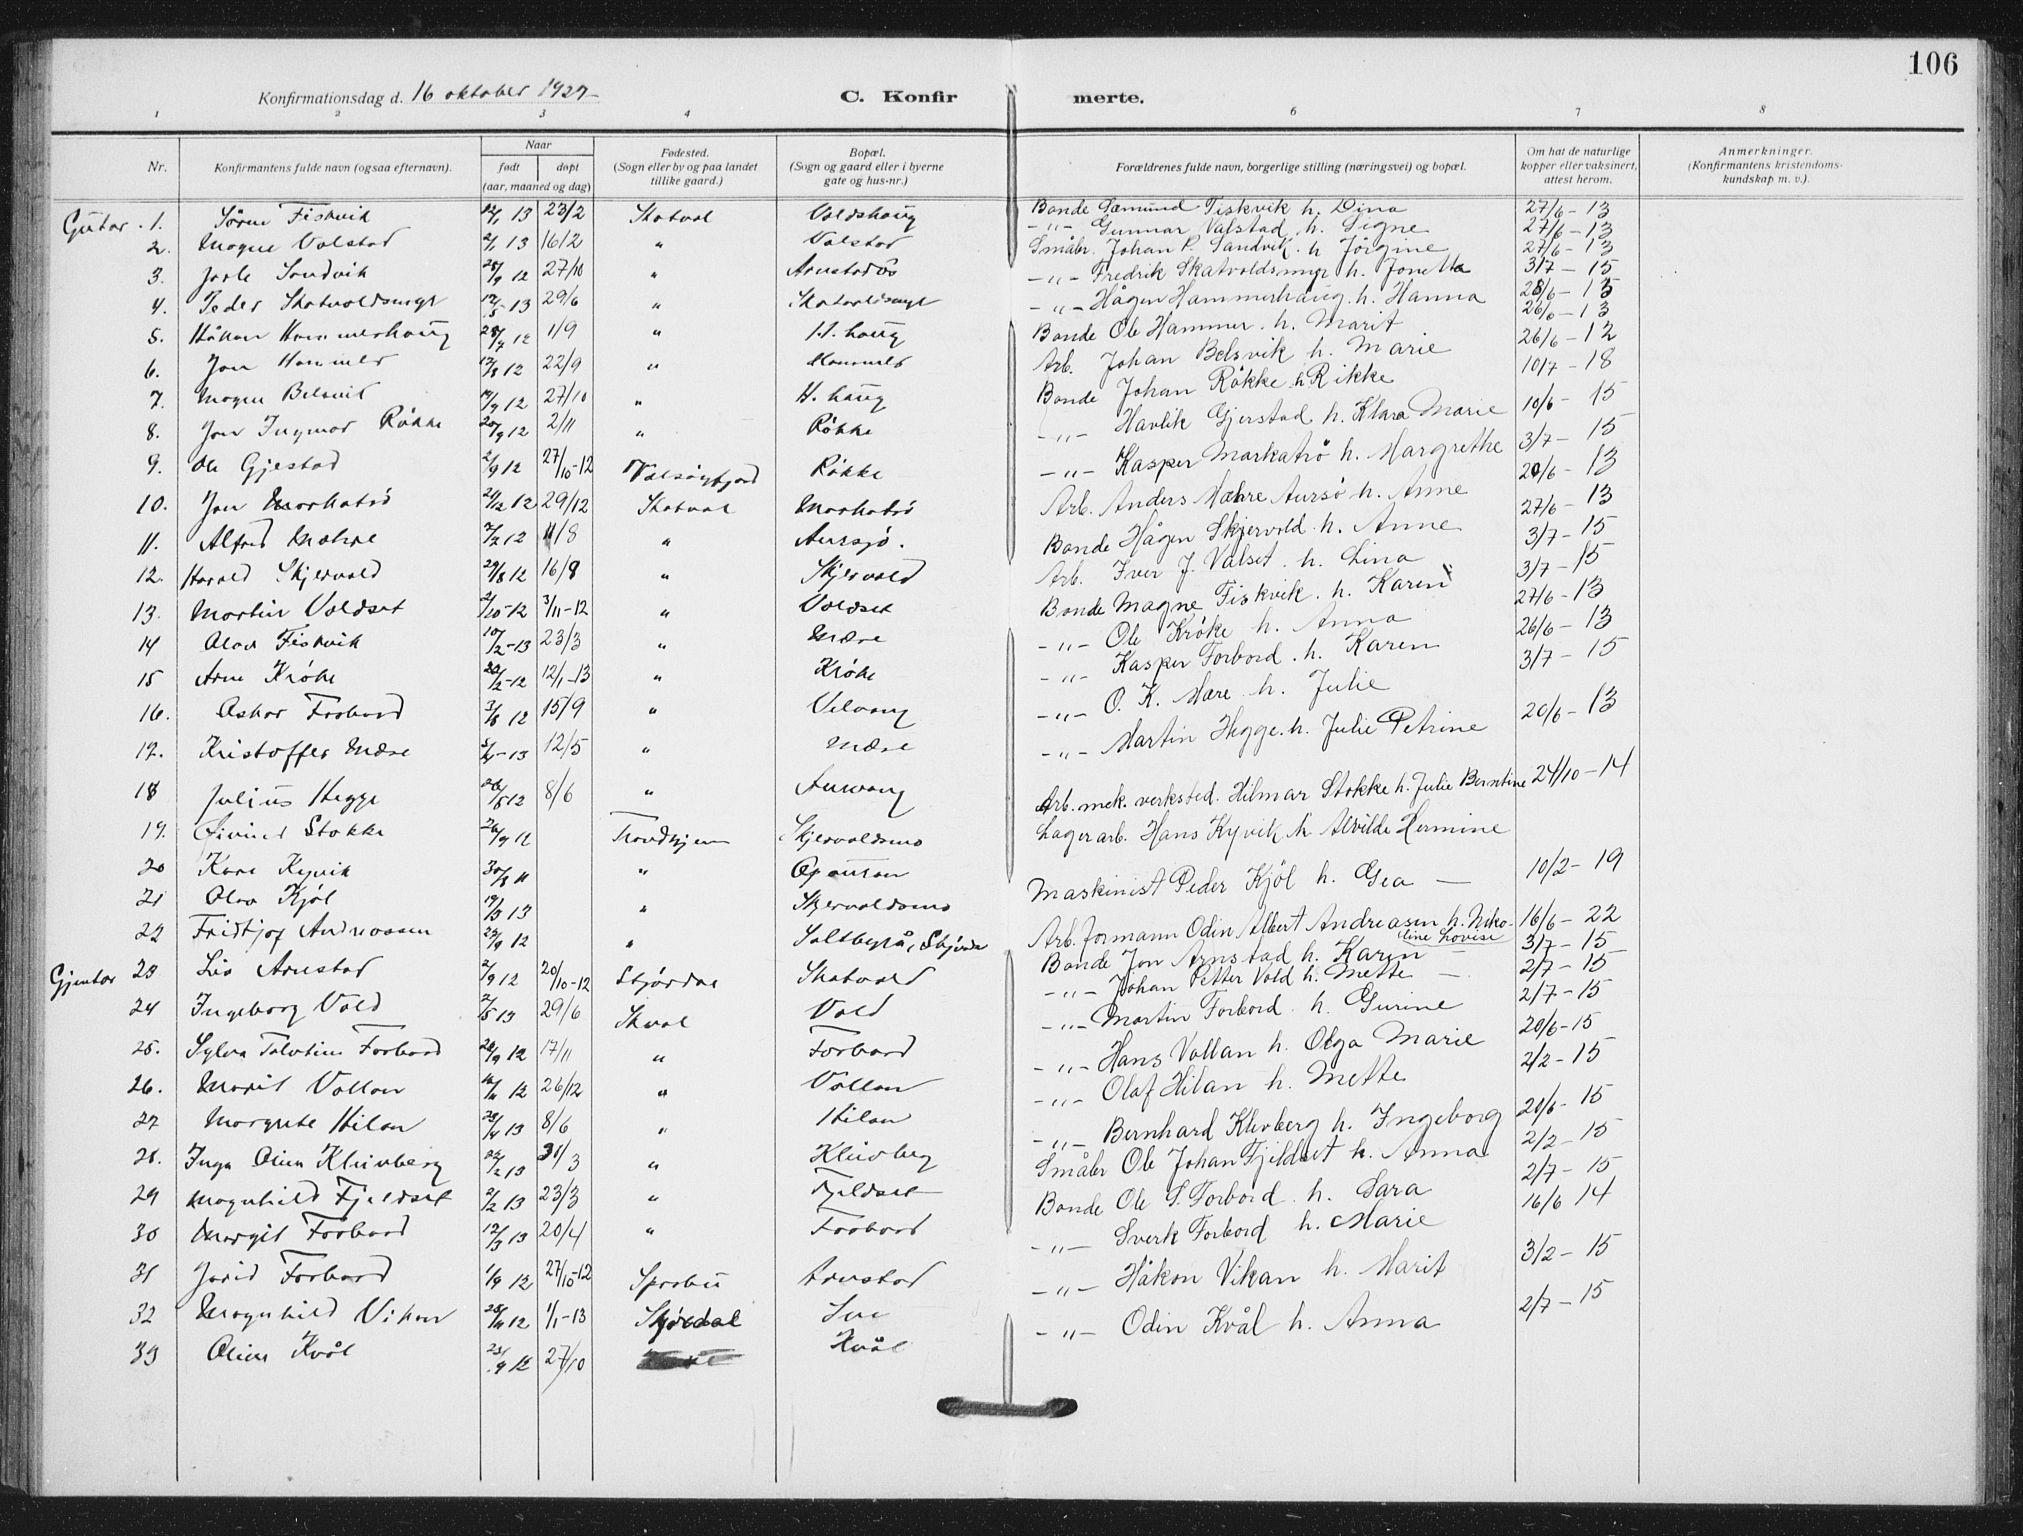 106
Konfirmationsdag d. 16 oktober 1927
C. Konfir merte.
1 2 3 4 6 7 8
Nr. Konfirmantens fulde navn (ogsaa efternavn). Naar født døpt (aar, maaned og dag) Fødested. (Sogn eller by og paa landet tillike gaard.) Bopæl. (Sogn og gaard eller i byerne gate og hus-nr.) Forældrenes fulde navn, borgerlige stilling (næringsvei) og bopæl. Om hat de naturlige kopper eller vaksinert, attest herom. Anmerkninger. (Konfirmantens kristendoms-kundskap m. v.).
Gutar 1. Fiskvik 13 23/2 Skatval Valdshaug Bonde Sæmund Fiskvik h. Dina 27/6-13
2. Magne Valstad 2/1 13 16/2 " Valstad -"- Gunnar Valstad h. Signe 27/6-13
3. Sandvik 12 27/10 " Småbr. Johan P. Sandvik h. Jørgine 27/6-13
4. Peder Skatvoldsmyr 13 29/6 " Skatvoldsmyr -"- Fredrik Skatvoldsmyr h. Jonetta 3/7-15
5. Håkon Hammerhaug 12 1/9 " H.haug -"- Hågen Hammerhaug h. Hanna 28/6-15
6. Jon Hammer 12 22/9 " Hammer Bonde Ole Hammer h. Marit 26/6-13
7. Magne Belsvik 12 27/10 " H.haug Arb. Johan Belsvik h. Marie 26/6-12
8. Jon Ingmar Røkke 20/9 12 2/11 " Røkke Bonde Johan Røkke h Rikke 10/7-18
9. Ole Gjestad 2/9 12 27/10-12 Valsøyfjord Røkke -"- Havlik Gjerstad h. Klara Marie 10/6-15
10. Jon Markatrø 12 29/12 Skatval Markatrø -"- Kasper Markatrø h. Margrethe 3/7-15
11. Alfred Mæhre 12 11/8 " Aursjø. Arb. Anders Mæhre Aursø h. Anne 20/6-13
12. Harald Skjervold 12 16/8 " Skjervold Bonde Hågen Skjervold h. Anne 27/6-13
13. Martin Valdset 2/10-12 3/11-12 " Valdset Arb. Iver J. Valset h. Lina 3/7-15
14 Olav Fiskvik 10/2-13 23/3 " Mære Bonde Magne Fiskvik h. Karen 3/7-15
15 Arne Krøke 12 12/1-13 " Krøke -"- Ole Krøke h. Anna 27/6-13
16. Oskar Forbord 3/8 12 15/9 " Velvang -"- Kasper Forbord h. Karen 26/6-13
17. Kristoffer Mære 13 12/5 " Mære -"- O. K. Mære h. Julie 3/7-15
18 Julius Hegge 26/5 12 8/6 " Auvang -"- Martin Hegge h. Julie Petrine 20/6-13
19. Øivind Stokke 26/9 12 Trondhjem Skjervoldsmo Arb. mek. verksted. Hilmar Stokke h. Julie Berntine 24/10-14
20 Kåre Kyvik 30/8 11 " Lagerarb. Hans Kyvik h Alvilde Hermine
21 Olav Kjøl 19/3 13 " Skjervoldsmo Maskinist Peder Kjøl h. Gea - 10/2-19
22 Fridtjof Andreassen 12 " Arb. formann Odin Albert Andreasen h. Niko-line Lovise 16/6-22
Gjentor 23 Liv Arnstad 2/9 12 20/10-12 Stjørdal Skatvold Bonde Jon Arnstad h. Karen - 3/7-15
24 Ingeborg Vold 2/5 13 29/6 Skval Vold -"- Johan Petter Vold h. Mette - 2/7-15
25. Sylva Forbord 12 17/11 " Forbord -"- Martin Forbord h. Gurine 2/7-15
26. Marit Vollan 12 26/12 " Vollan -"- Hans Vollan h. Olga Marie 20/6-15
27 Margrete Hilan 13 8/6 " Hilan -"- Olaf Hilan h. Mette 2/2-15
28. Inga Klevberg 13 31/3 " Klevberg -"- Bernhard Klevberg h. Ingeborg 20/6-15
29 Magnhild Fjeldset 2/2 13 23/3 " Fjeldset Småbr Ole Johan Fjeldset h. Anna 2/2-15
30 Margit Forbord 12/3 13 20/4 " Forbord Bonde Ole S. Forbord h. Sara 2/7-15
31 Jorid Forbord 1/9 12 27/10-12 Sparbu Arnstad -"- Sverk Forbord h. Marie 16/6 14
32 Magnhild Vikan 12 1/1-13 Stjørdal -"- Håkon Vikan h. Marit 3/2-15
33 Kvål 12 27/10 Kvål -"- Odin Kvål h. Anna 2/7-15